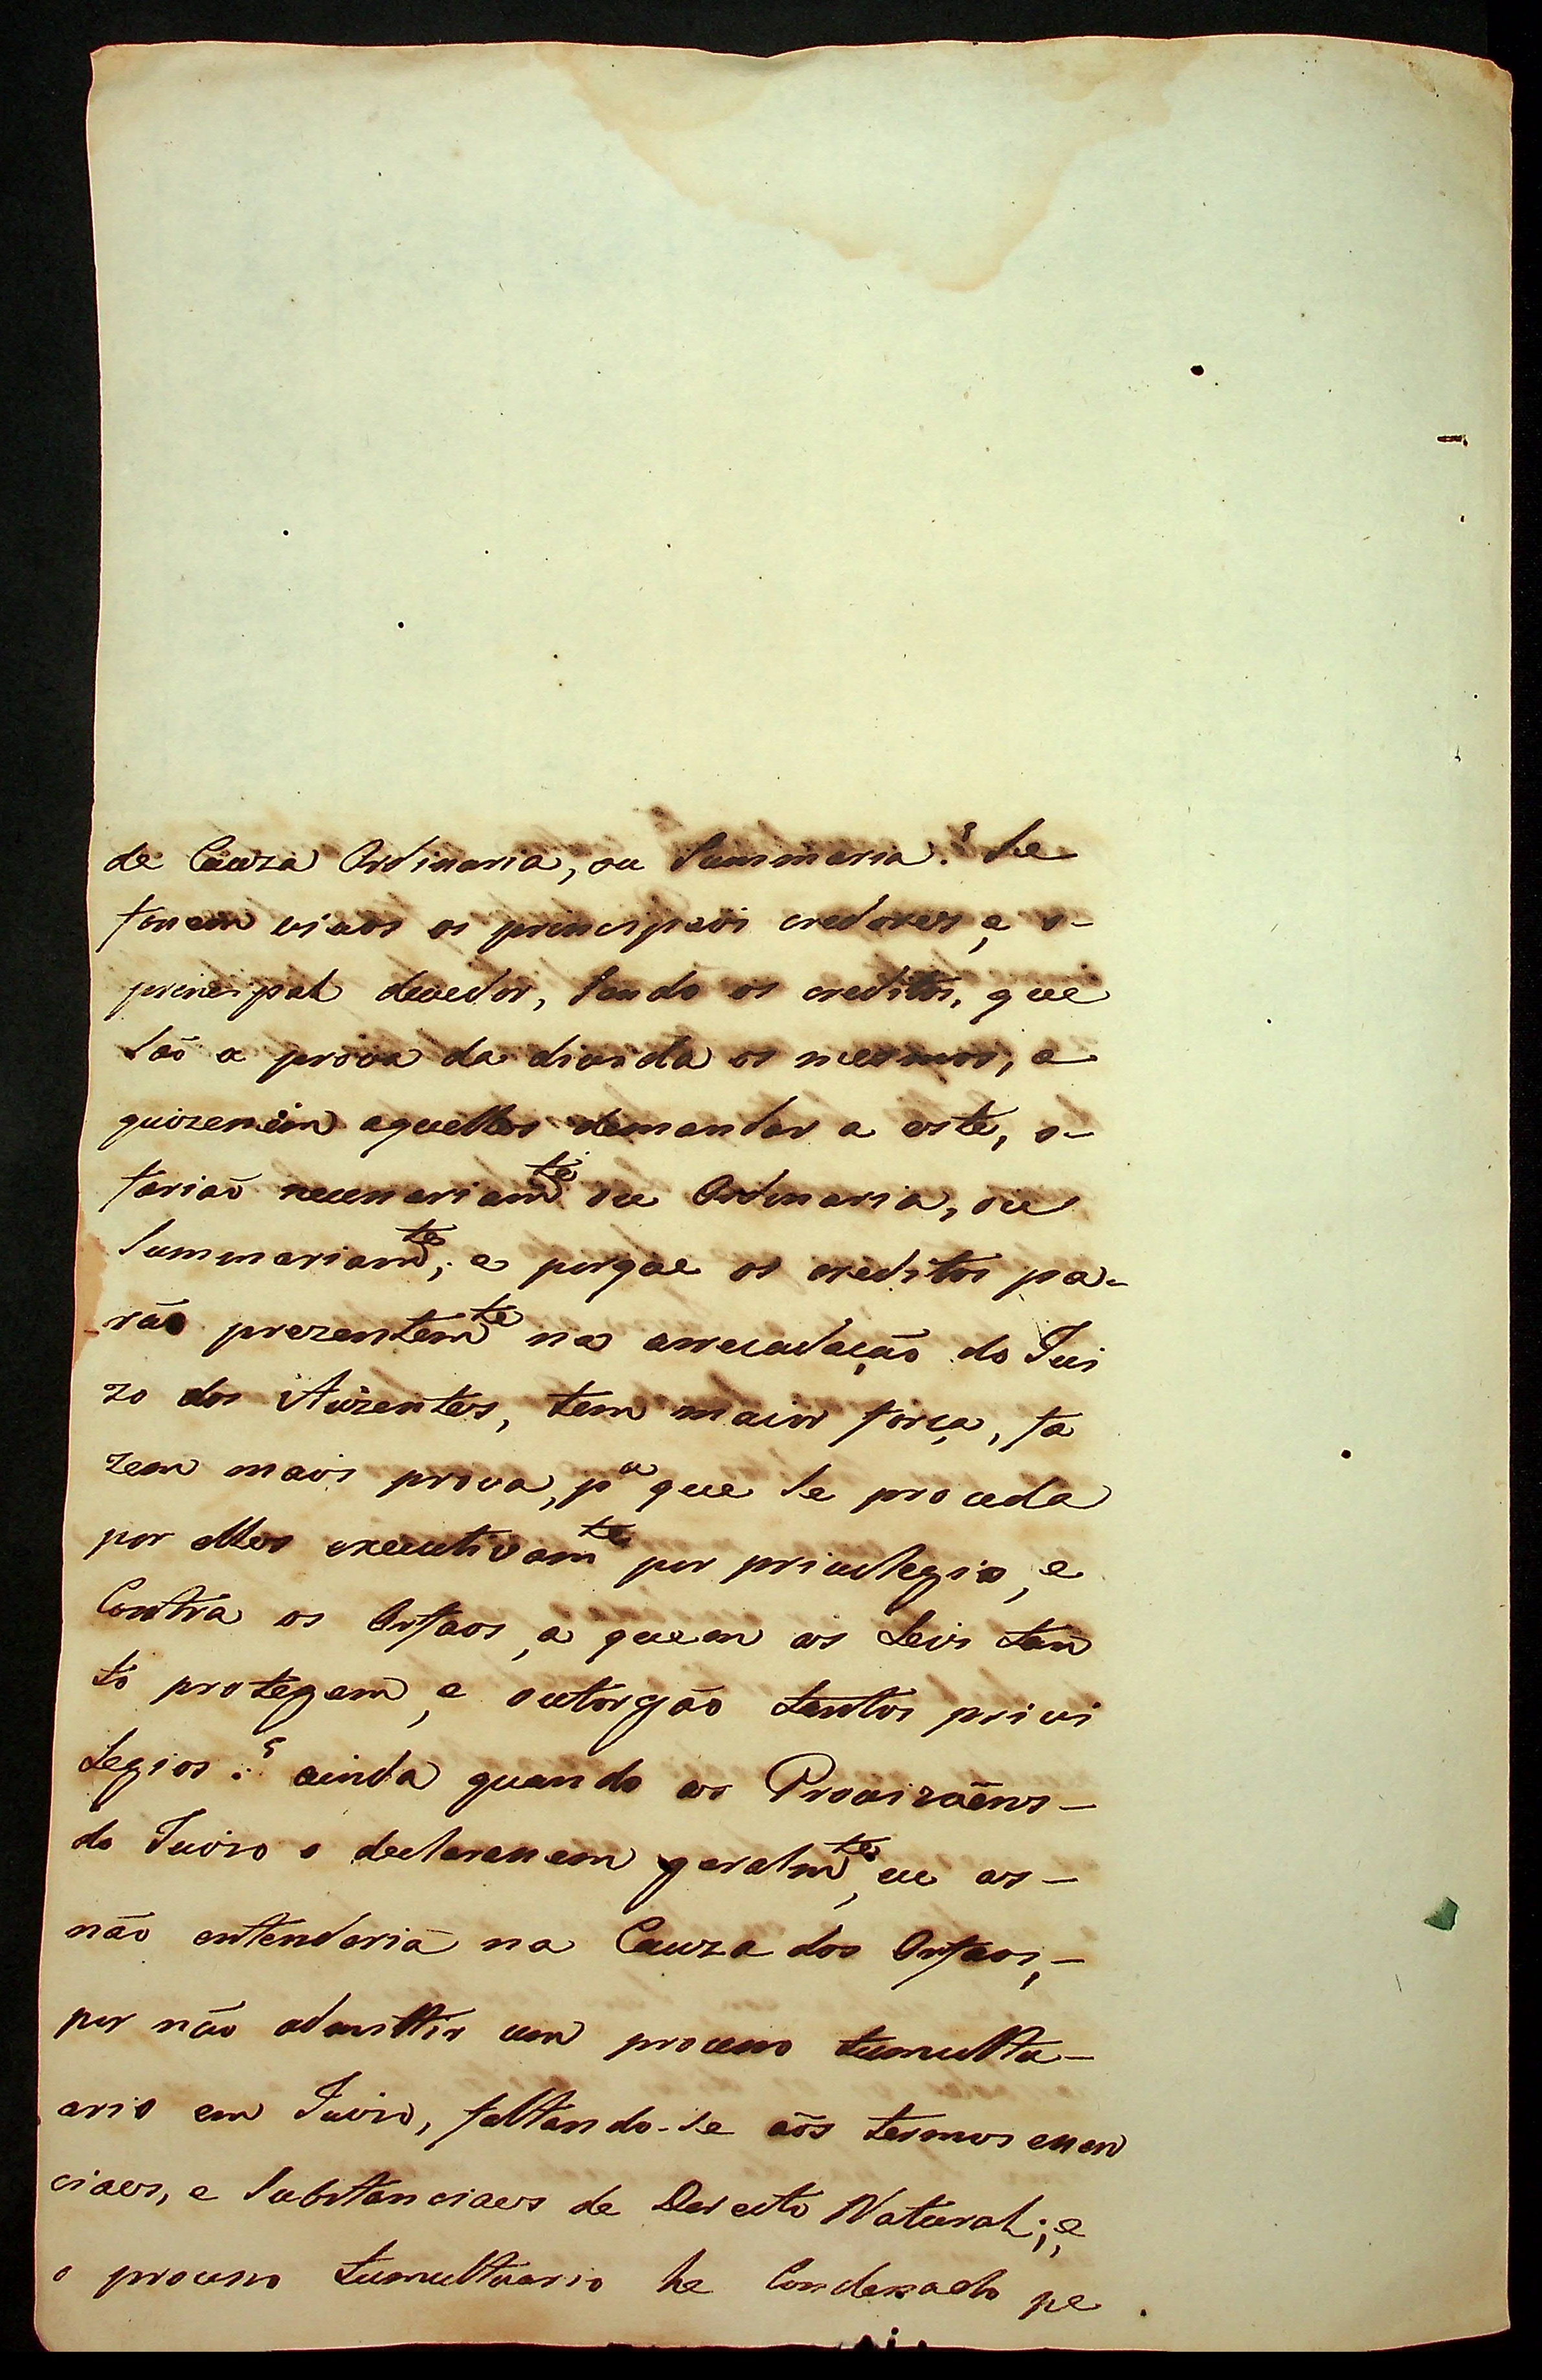 de Cauza Ordinaria, ou Summaria? Se
fossem vivos os principais credores, e o-
principal devedor, sendo os creditos, que
saõ a prova da divida os mesmos, e
quizessem aquelles demandar a este, o-
fariaõ necessariam.te ou Ordinaria, ou
Summariam.te; e porque os creditos pa-
rão prezentem.te na arrecadação do Jui
zo dos Auzentes, tem maior força, fa
zem mais prova, p.a que se proceda
por elles executivam.te por privilegio, e
Contra os Orfaos, a quem as Leis tan
to protegem, e outorgão tantos privi
legios? ainda quando as Provizoens-
do Juizo o declarassem geralm.te, eu as-
não entenderia na Cauza dos Orfaos,-
por não admittir um processo tumultu-
ario em Juizo, faltando-se aõs termos essen
ciaes, e substanciaes de Dereito Natural; e
o processo tumultuario he Condenado pe